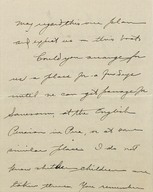 may regard this our plan
is in this
Could you arrange for
us a place for a few days
until we can get passage for
at the English
Pension in or at some
similar place. I do not
know if the children are
taken there. You remember